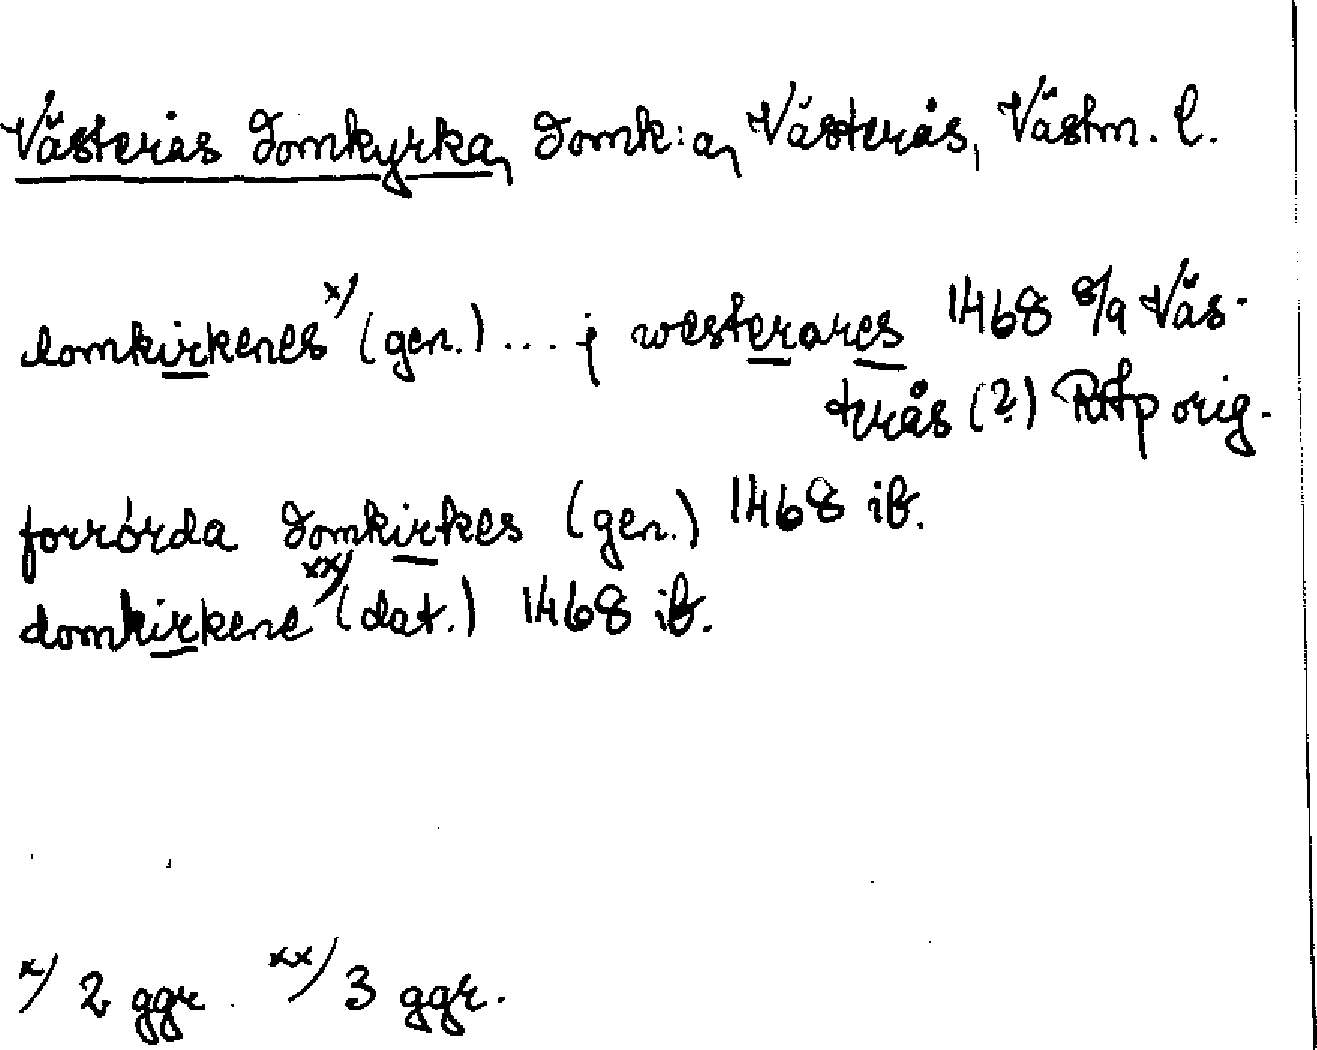 Västerås Domkyrka, Domk:a, Västerås, Västm. l.
domkirkenes x) (gen.) ... j westerares 1468 8/9 Väs-
terås (?) RAp orig.
forrörda Domkirkes (gen.) 1468 ib.
domkirkene xx) (dat.) 1468 ib.
x) 2 ggr. xx) 3 ggr.